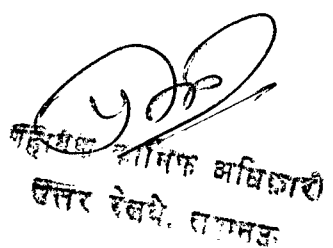 सहायक कार्मिक अधिकारी
उत्तर रेलवे, लखनऊ